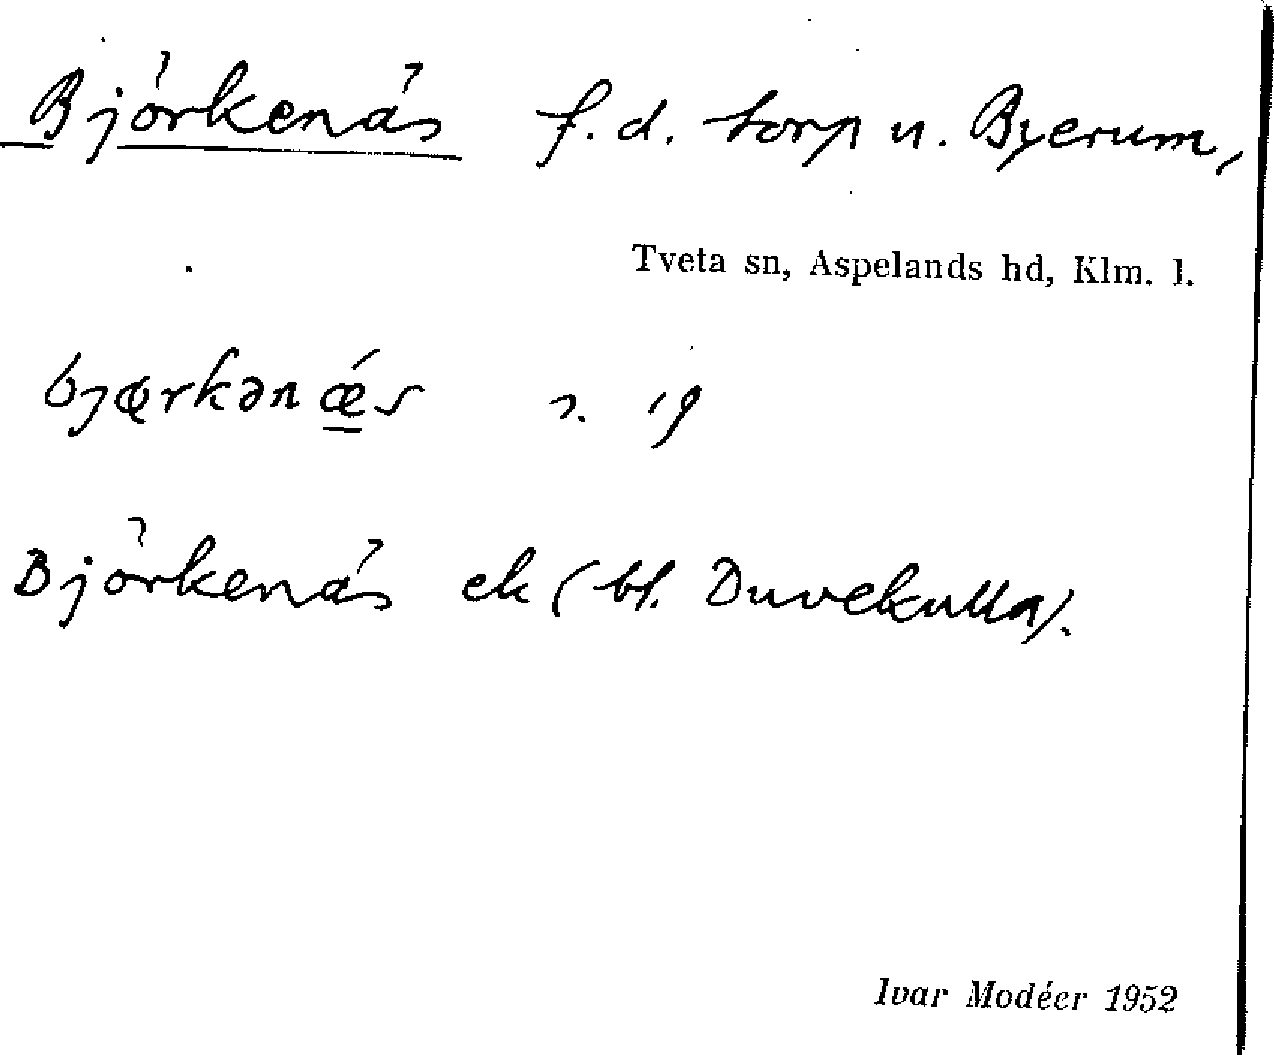 Björkenäs f.d. torp u. Byerum,
Tveta sn, Aspelands hd, Klm. l.
bjœrkənǽs 2. 19
Björkenäs ek (bl. Duvekulla).
Ivar Modéer 1952